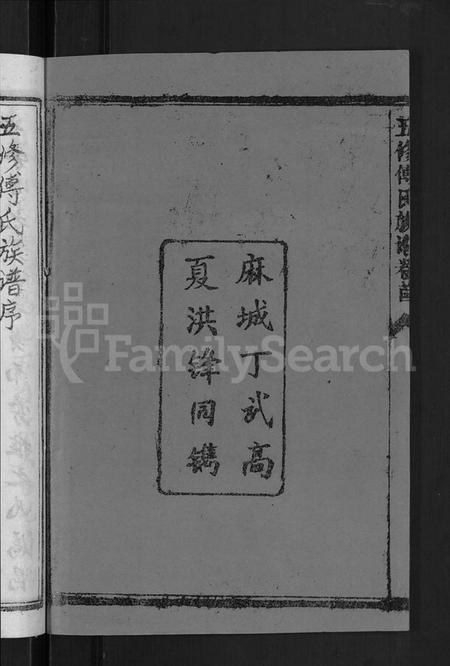 五修傅氏族谱卷首
麻城丁武高
夏洪锋同鐫
五修傅氏族谱序
FamilySearch